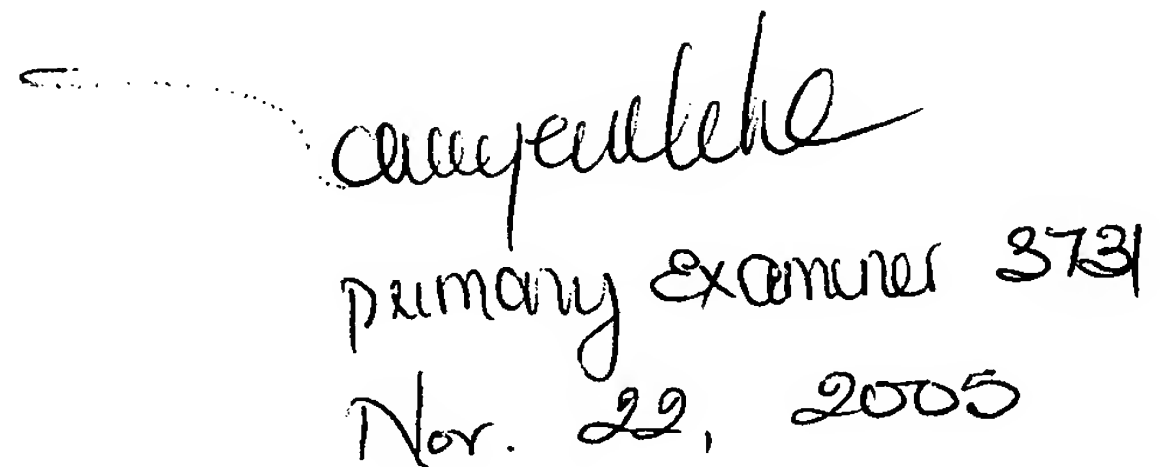 Primary Examiner 3731
Nov. 22, 2005